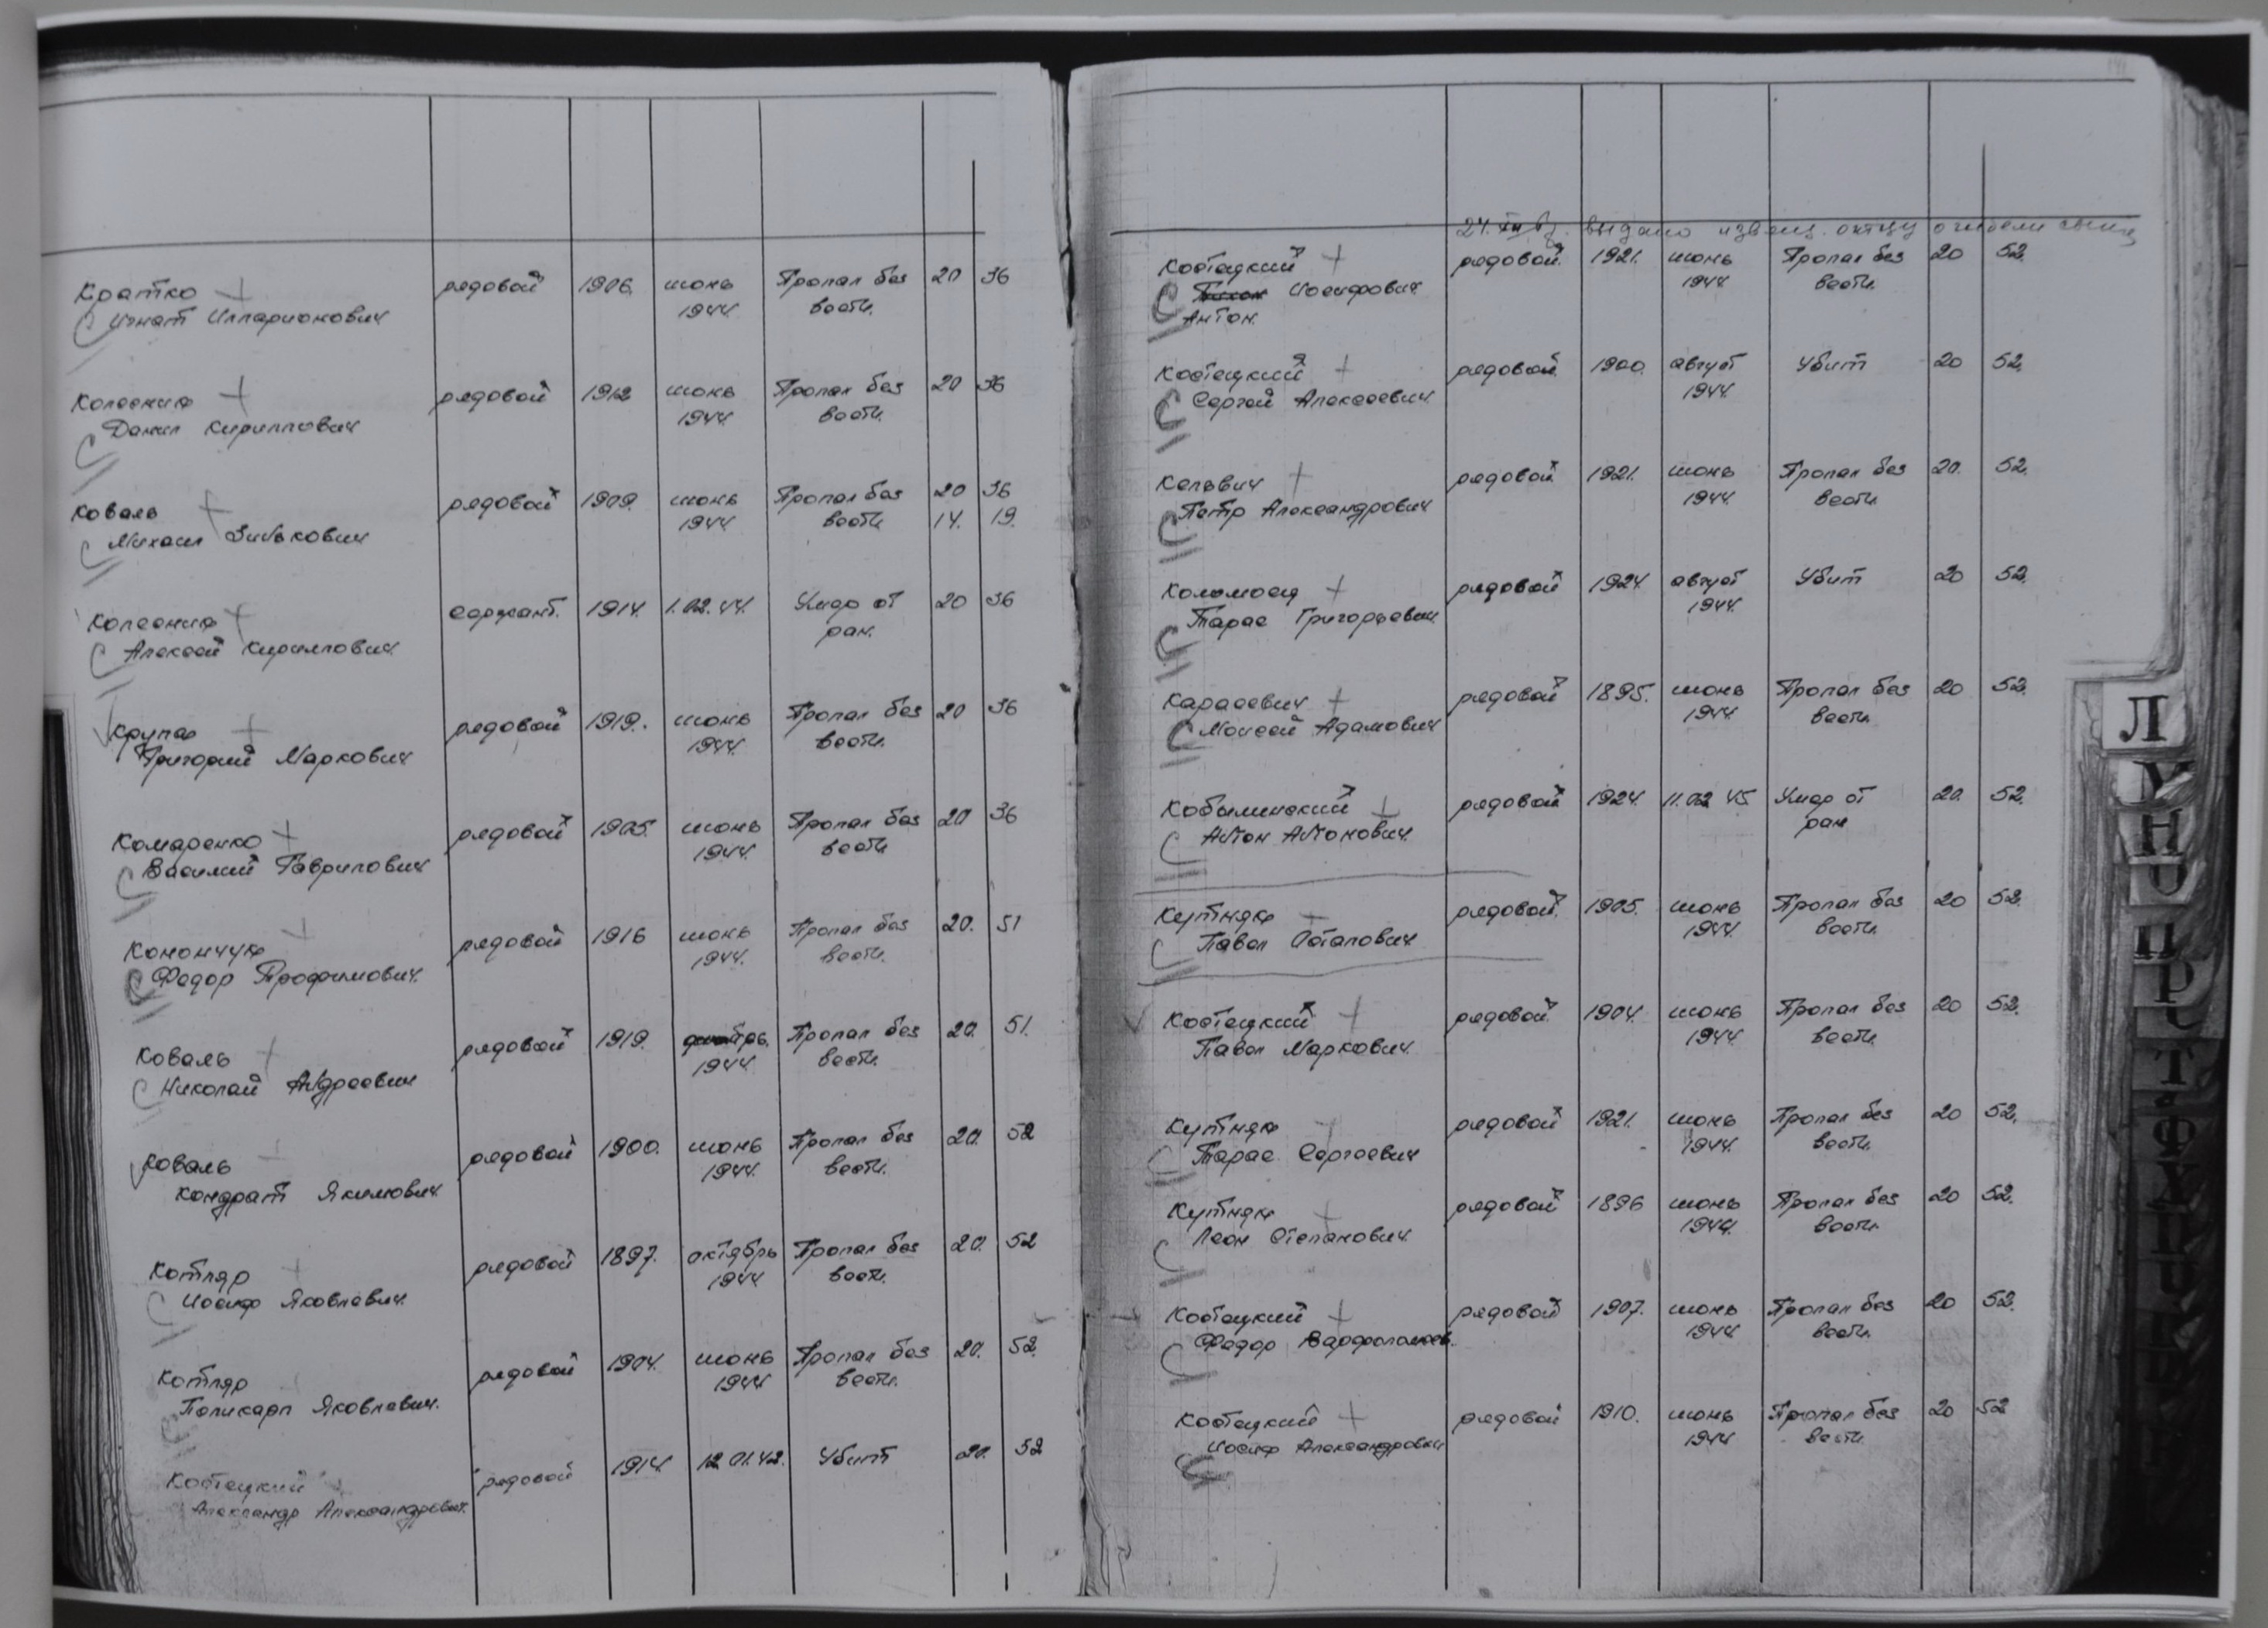 Кратко рядовой 1906. июнь Пропал без 20 36
Игнат Илларионович 1944 вести.
Колесник рядовой 1912 июнь Пропал без 20 36
Данил Кириллович 1944. вести.
Коваль рядовой 1909. июнь Пропал без 20 36
Михаил Зинькович 1944 вести 14. 19.
Колесник сержант. 1914. 1.02.44. Умер от 20 36
Алексей Кириллович ран.
Крупак рядовой 1919. июнь Пропал без 20 36
Григорий Маркович 1944. вести.
Комаренко рядовой 1905. июнь Пропал без 20 36
Василий Гаврилович 1944. вести
Конончук рядовой 1916 июнь Пропал без 20. 51
Федор Трофимович. 1944. вести.
Коваль рядовой 1919. Пропал без 20. 51.
Николай Андреевич 1944. вести.
Коваль рядовой 1900. июнь Пропал без 20. 52
Кондрат Якимович 1944. вести.
Котляр рядовой 1897. октябрь Пропал без 20. 52
Иосиф Яковлевич. 1944 вести.
Котляр рядовой 1904. июнь Пропал без 20. 52.
Поликарп Яковлевич. 1944 вести.
Костецкий рядовой 1914. 12.01.42. Убит 20. 52
Александр Александрович.
24. выдано извещ. отцу о гибели сына
Костецкий рядовой. 1921. июнь Пропал без 20 52.
Иосифович 1944 вести.
Антон.
Костецкий рядовой. 1900. август Убит 20 52.
Сергей Алексеевич 1944.
Кельвич рядовой 1921. июнь Пропал без 20. 52.
Петр Александрович 1944. вести
Коломоец рядовой 1924. август Убит 20 52.
Тарас Григорьевич. 1944.
Карасевич рядовой 1895. июнь Пропал без 20 52.
Моисей Адамович 1944. вести.
Кобылинский рядовой 1924. 11.02 45 Умер от 20. 52.
Антон Антонович. ран
Кутняк рядовой. 1905. июнь Пропал без 20 52.
Павел Остапович 1944. вести.
Костецкий рядовой. 1904. июнь Пропал без 20 52.
Павел Маркович. 1944. вести.
Кутняк рядовой 1921. июнь Пропал без 20 52.
Тарас Сергеевич 1944. вести.
Кутняк рядовой 1896 июнь Пропал без 20 52.
Леон Степанович. 1944. вести.
Костецкий рядовой 1907. июнь Пропал без 20 52.
Федор Варфоломеев. 1944 вести.
Костецкий рядовой 1910. июнь Пропал без 20 52
Иосиф Александрович 1944 вести
Л
У
Н
О
П
Р
С
Т
Ф
Х